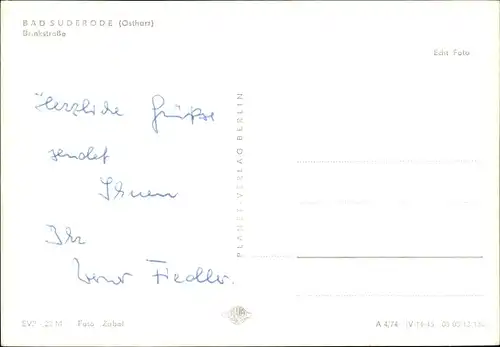 BAD SUDERODE (Ostharz)
Brinkstraße
Echt Foto
Herzliche Grüße
sendet
Ihnen
Ihr
Werner Fiedler.
PLANET-VERLAG BERLIN
EVP -,20 M Foto Zabel
A 4/74 IV-14-45